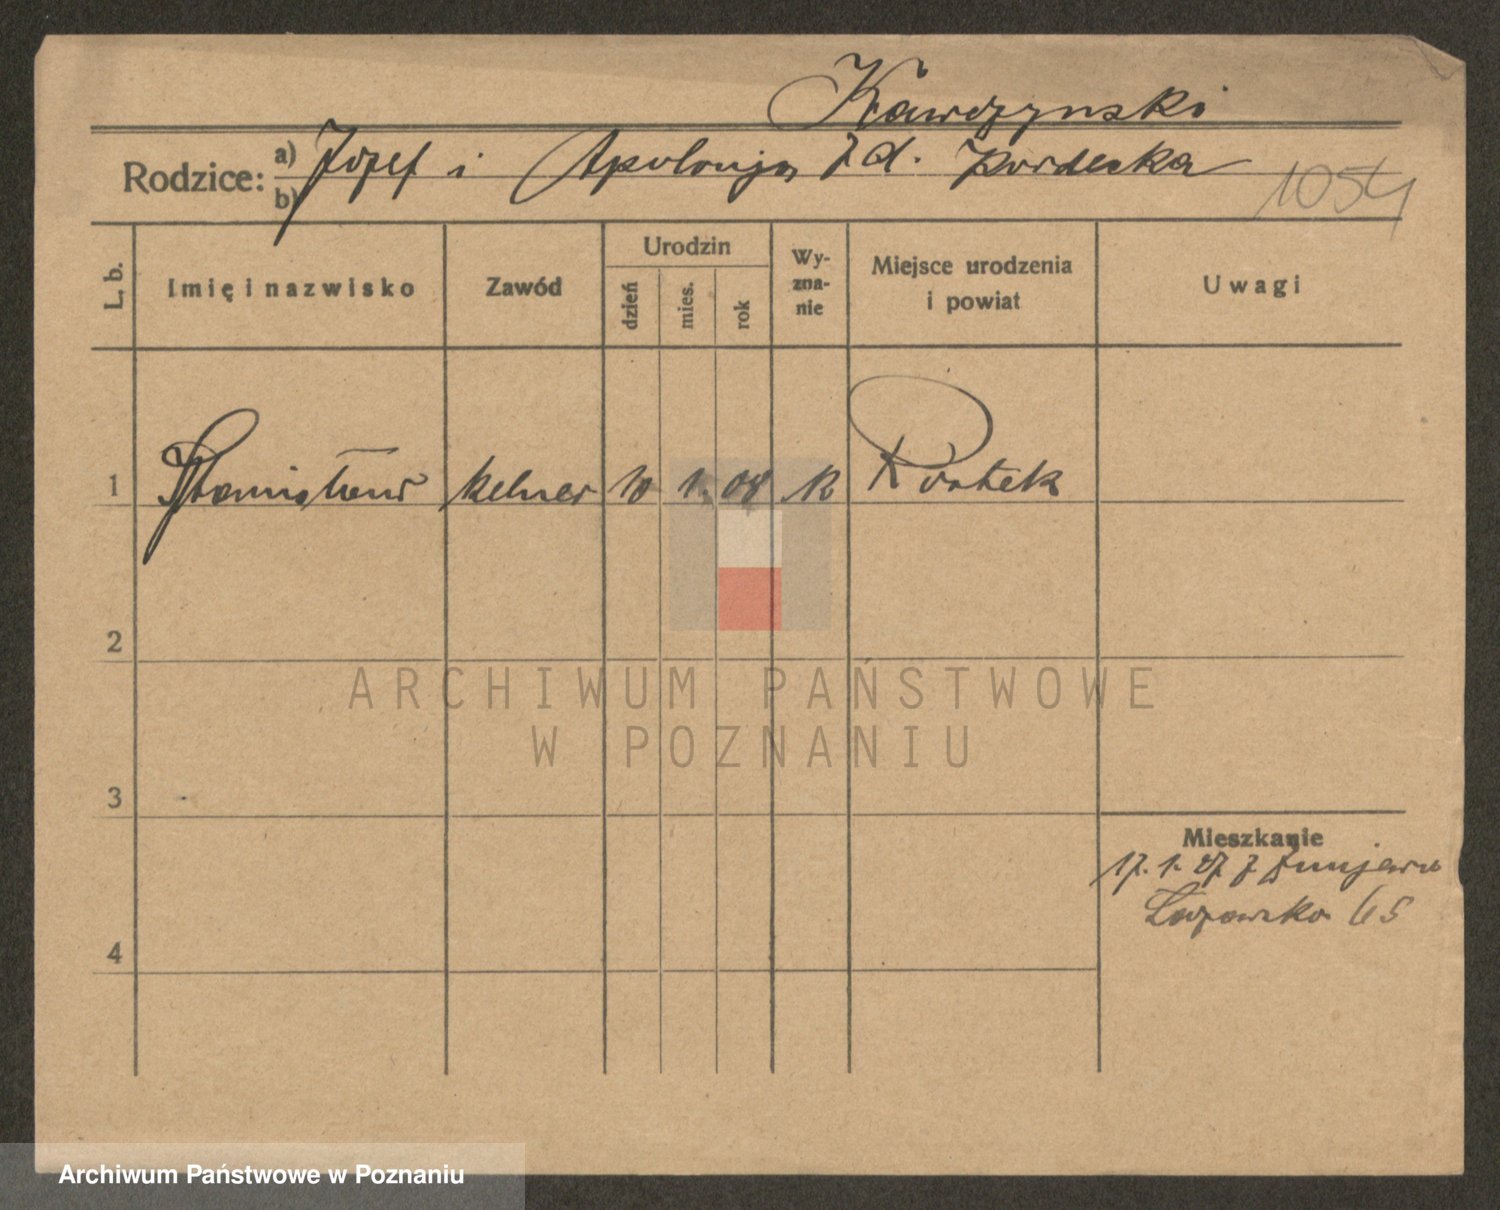 Kawczynski
Rodzice: a) Józef i Apolonja z d. Kordecka
b)
1054
L. b.
Imię i nazwisko
Zawód
Urodzin
dzień
mies.
rok
Wy-
zna-
nie
Miejsce urodzenia
i powiat
Uwagi
1 Stanisław kelner 10 1. 08 rk
2
ARCHIWUM PAŃSTWOWE
W POZNANIU
3
Mieszkanie
17. 1. 27 z
65
4
Archiwum Państwowe w Poznaniu